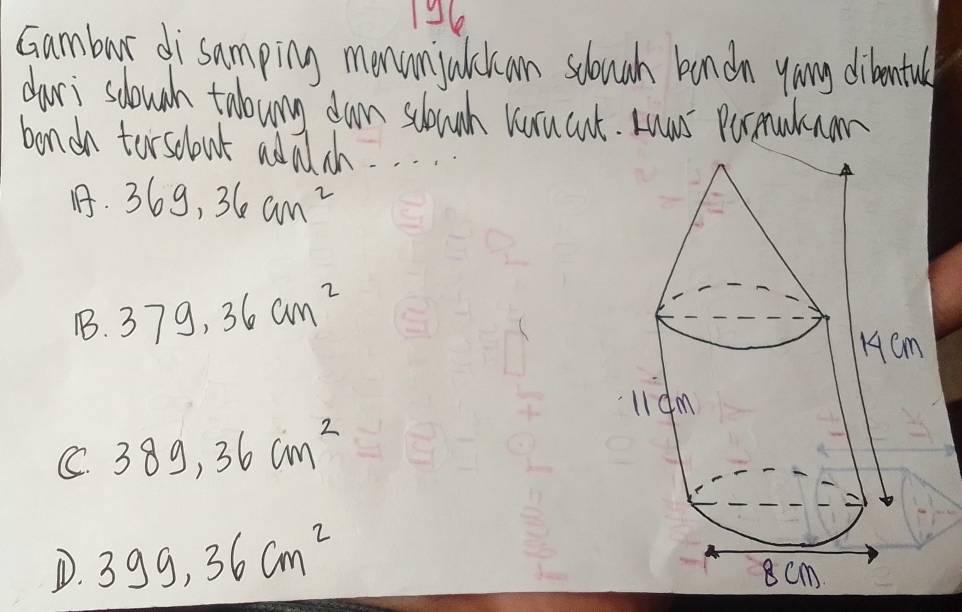 196
Gambar di samping menunjukkan sebuah benda yang dibentuk
dari sebuah tabung dan sebuah kerucut. Luas Permukaan
benda tersebut adalah .....
A. 369,36 cm²
B. 379,36 cm²
14 cm
11 cm
C. 389,36 cm²
D. 399,36 cm²
8 cm